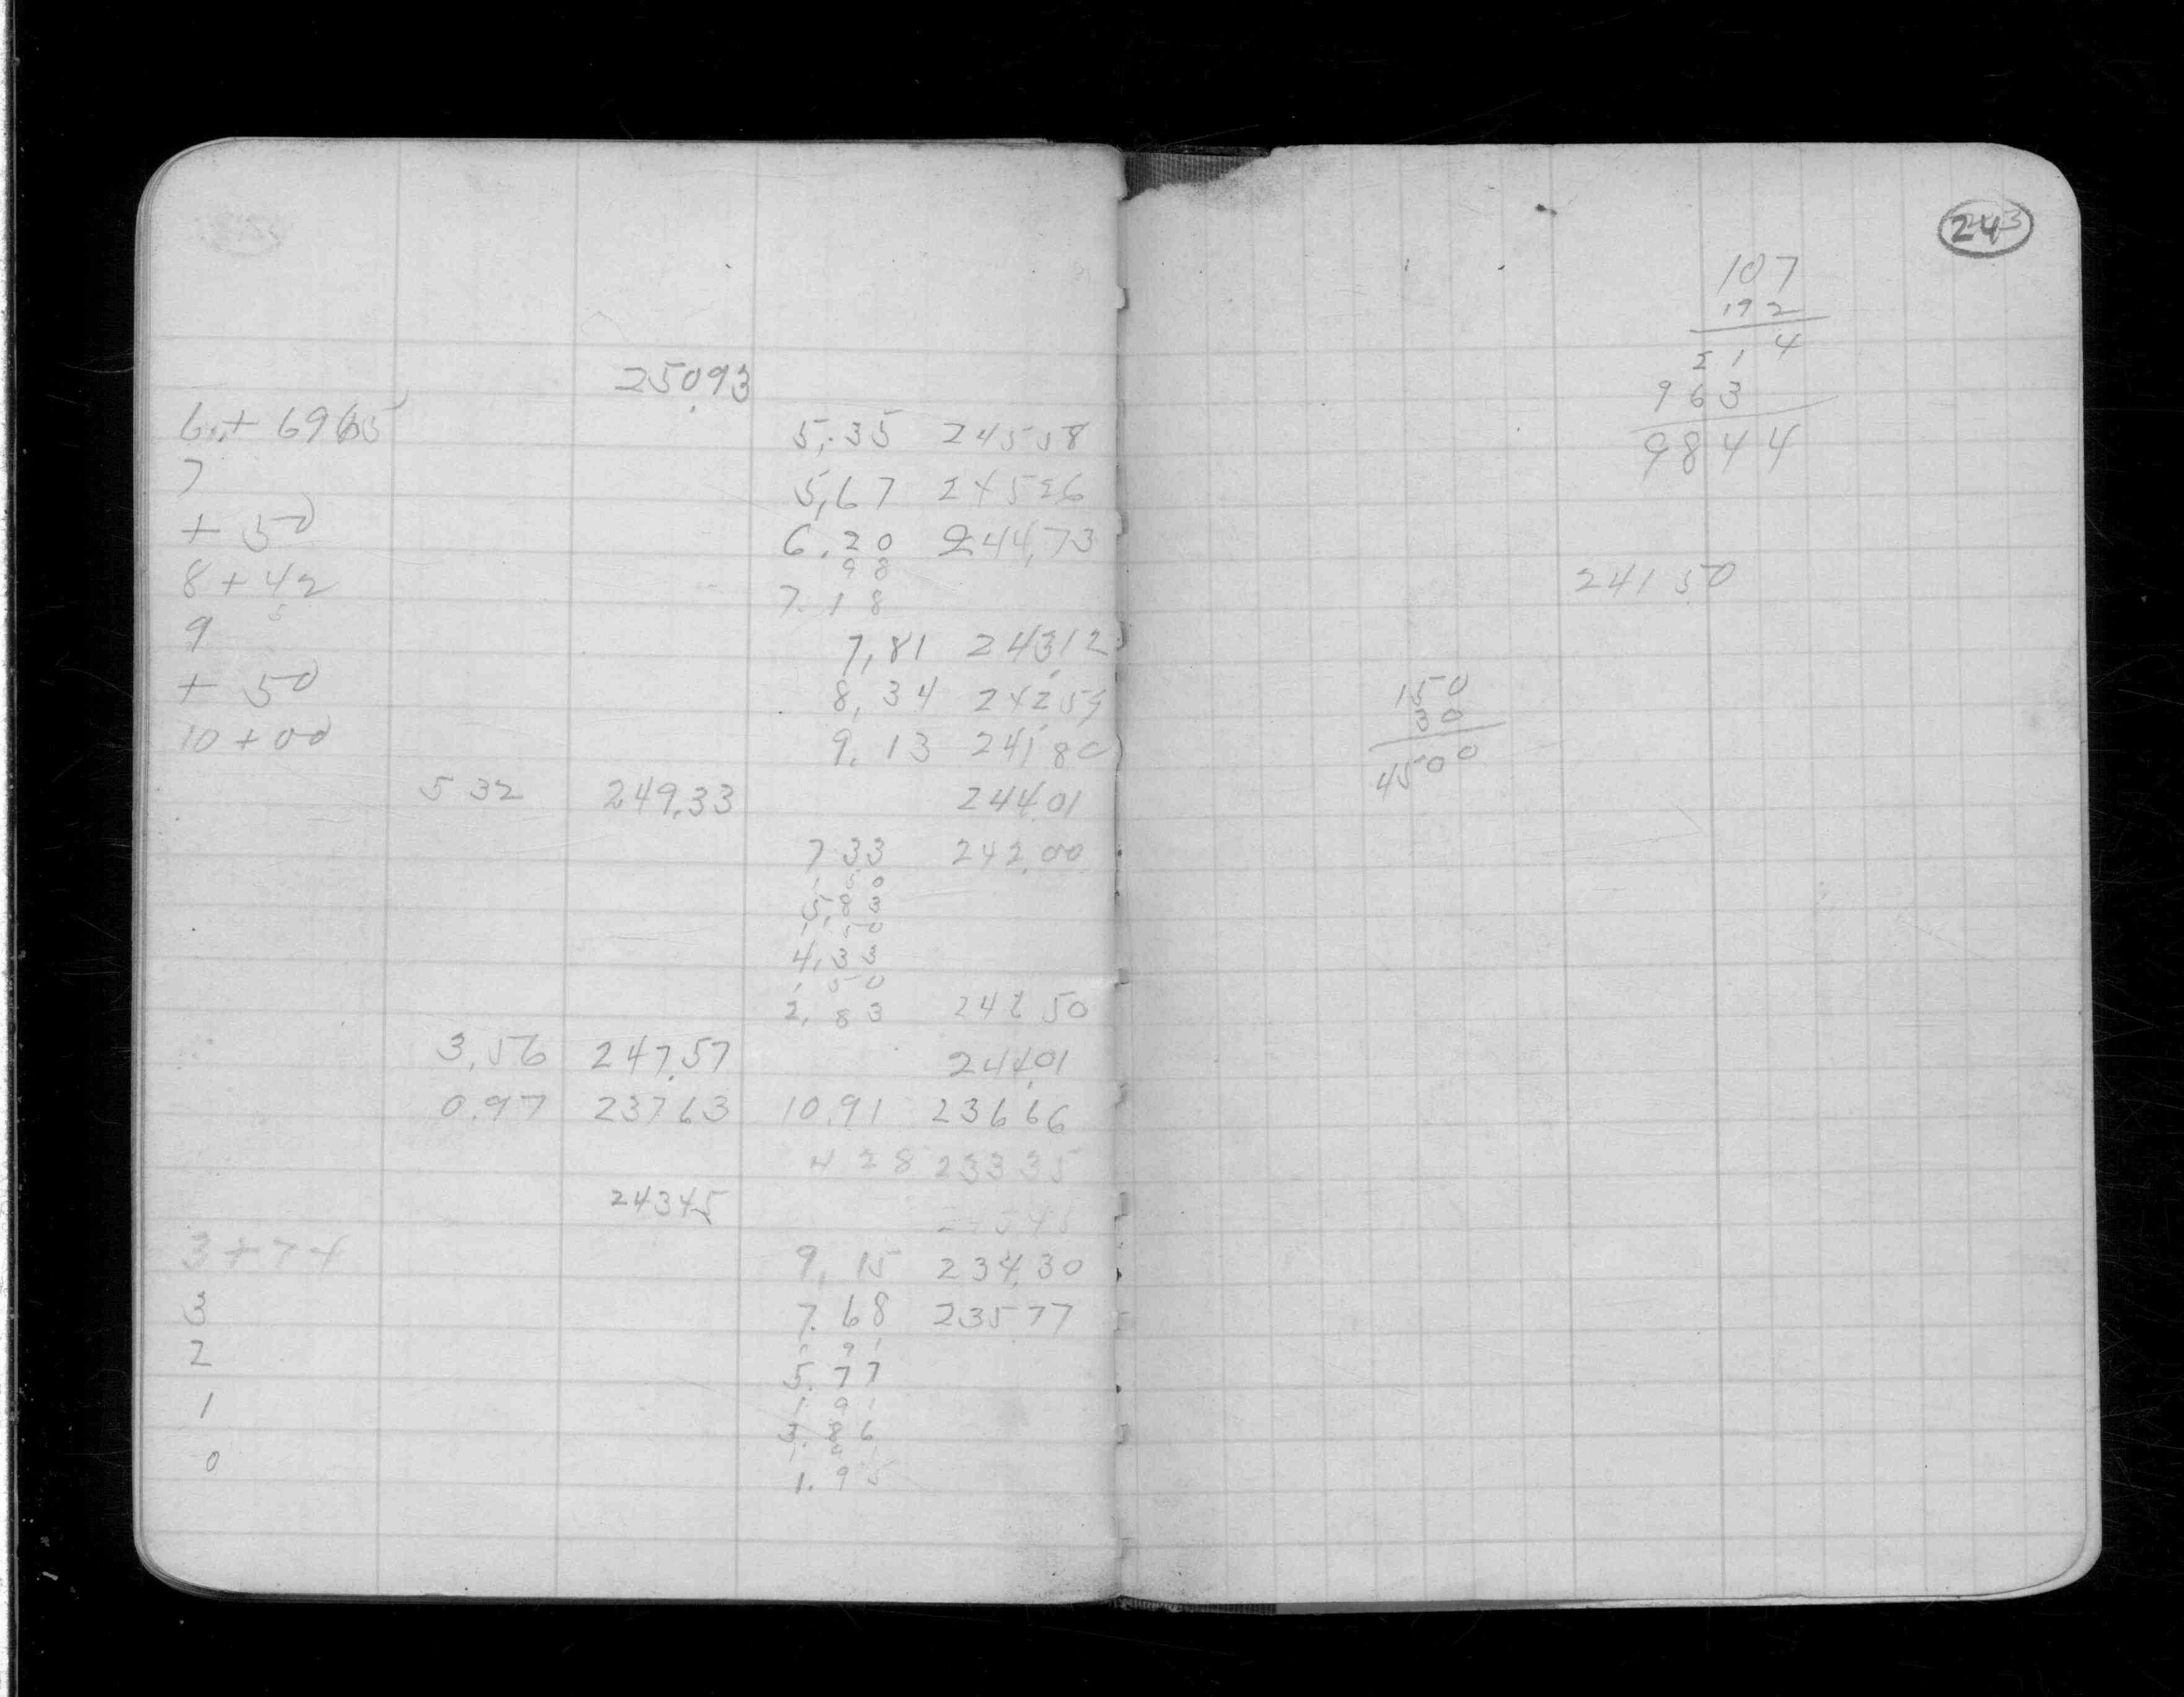 250.93
6.+ 6965 5,35 24558
7 5,67 24526
+ 50 6.20 244,73
98
8 + 42 7.18
5
9 7,81 243.12
+ 50 8,34 242.59
10 + 00 9.13 241.80
5 32 249.33 244.01
7 33 242.00
1 50
5,83
1,50
4,33
1 50
2,83 242 50
3,56 247.57 244.01
0.97 23763 10.91 23666
4 28 23335
24345
3 + 74 9,15 234.30
3 7.68 23577
1 91
2 5.77
1 91
1 3.86
0 1.95
243
107
192
214
963
9844
241 50
150
30
4500